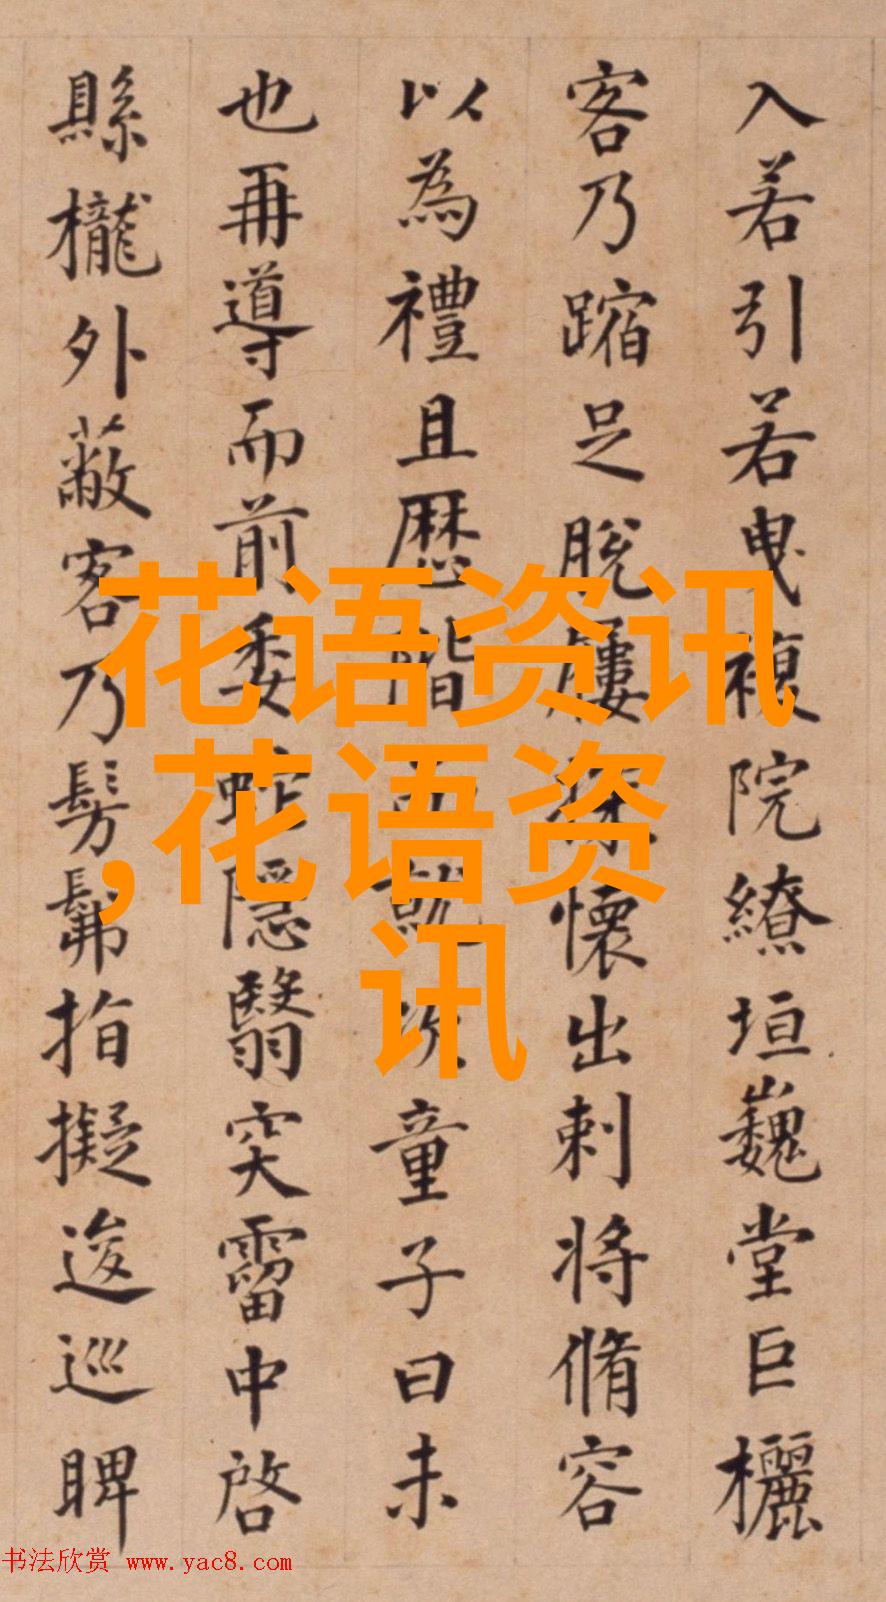 入若引若曳複院繚垣巍堂巨欐
客乃蹜足脫屨深懷出刺將脩容
以為禮且歷階而就次童子曰未
也再導而前委蛇隱翳突霤中啓
縣櫳外蔽客乃髣髴指擬逡巡睥
花语资讯
,花语资
讯
书法欣赏 www.yac8.com